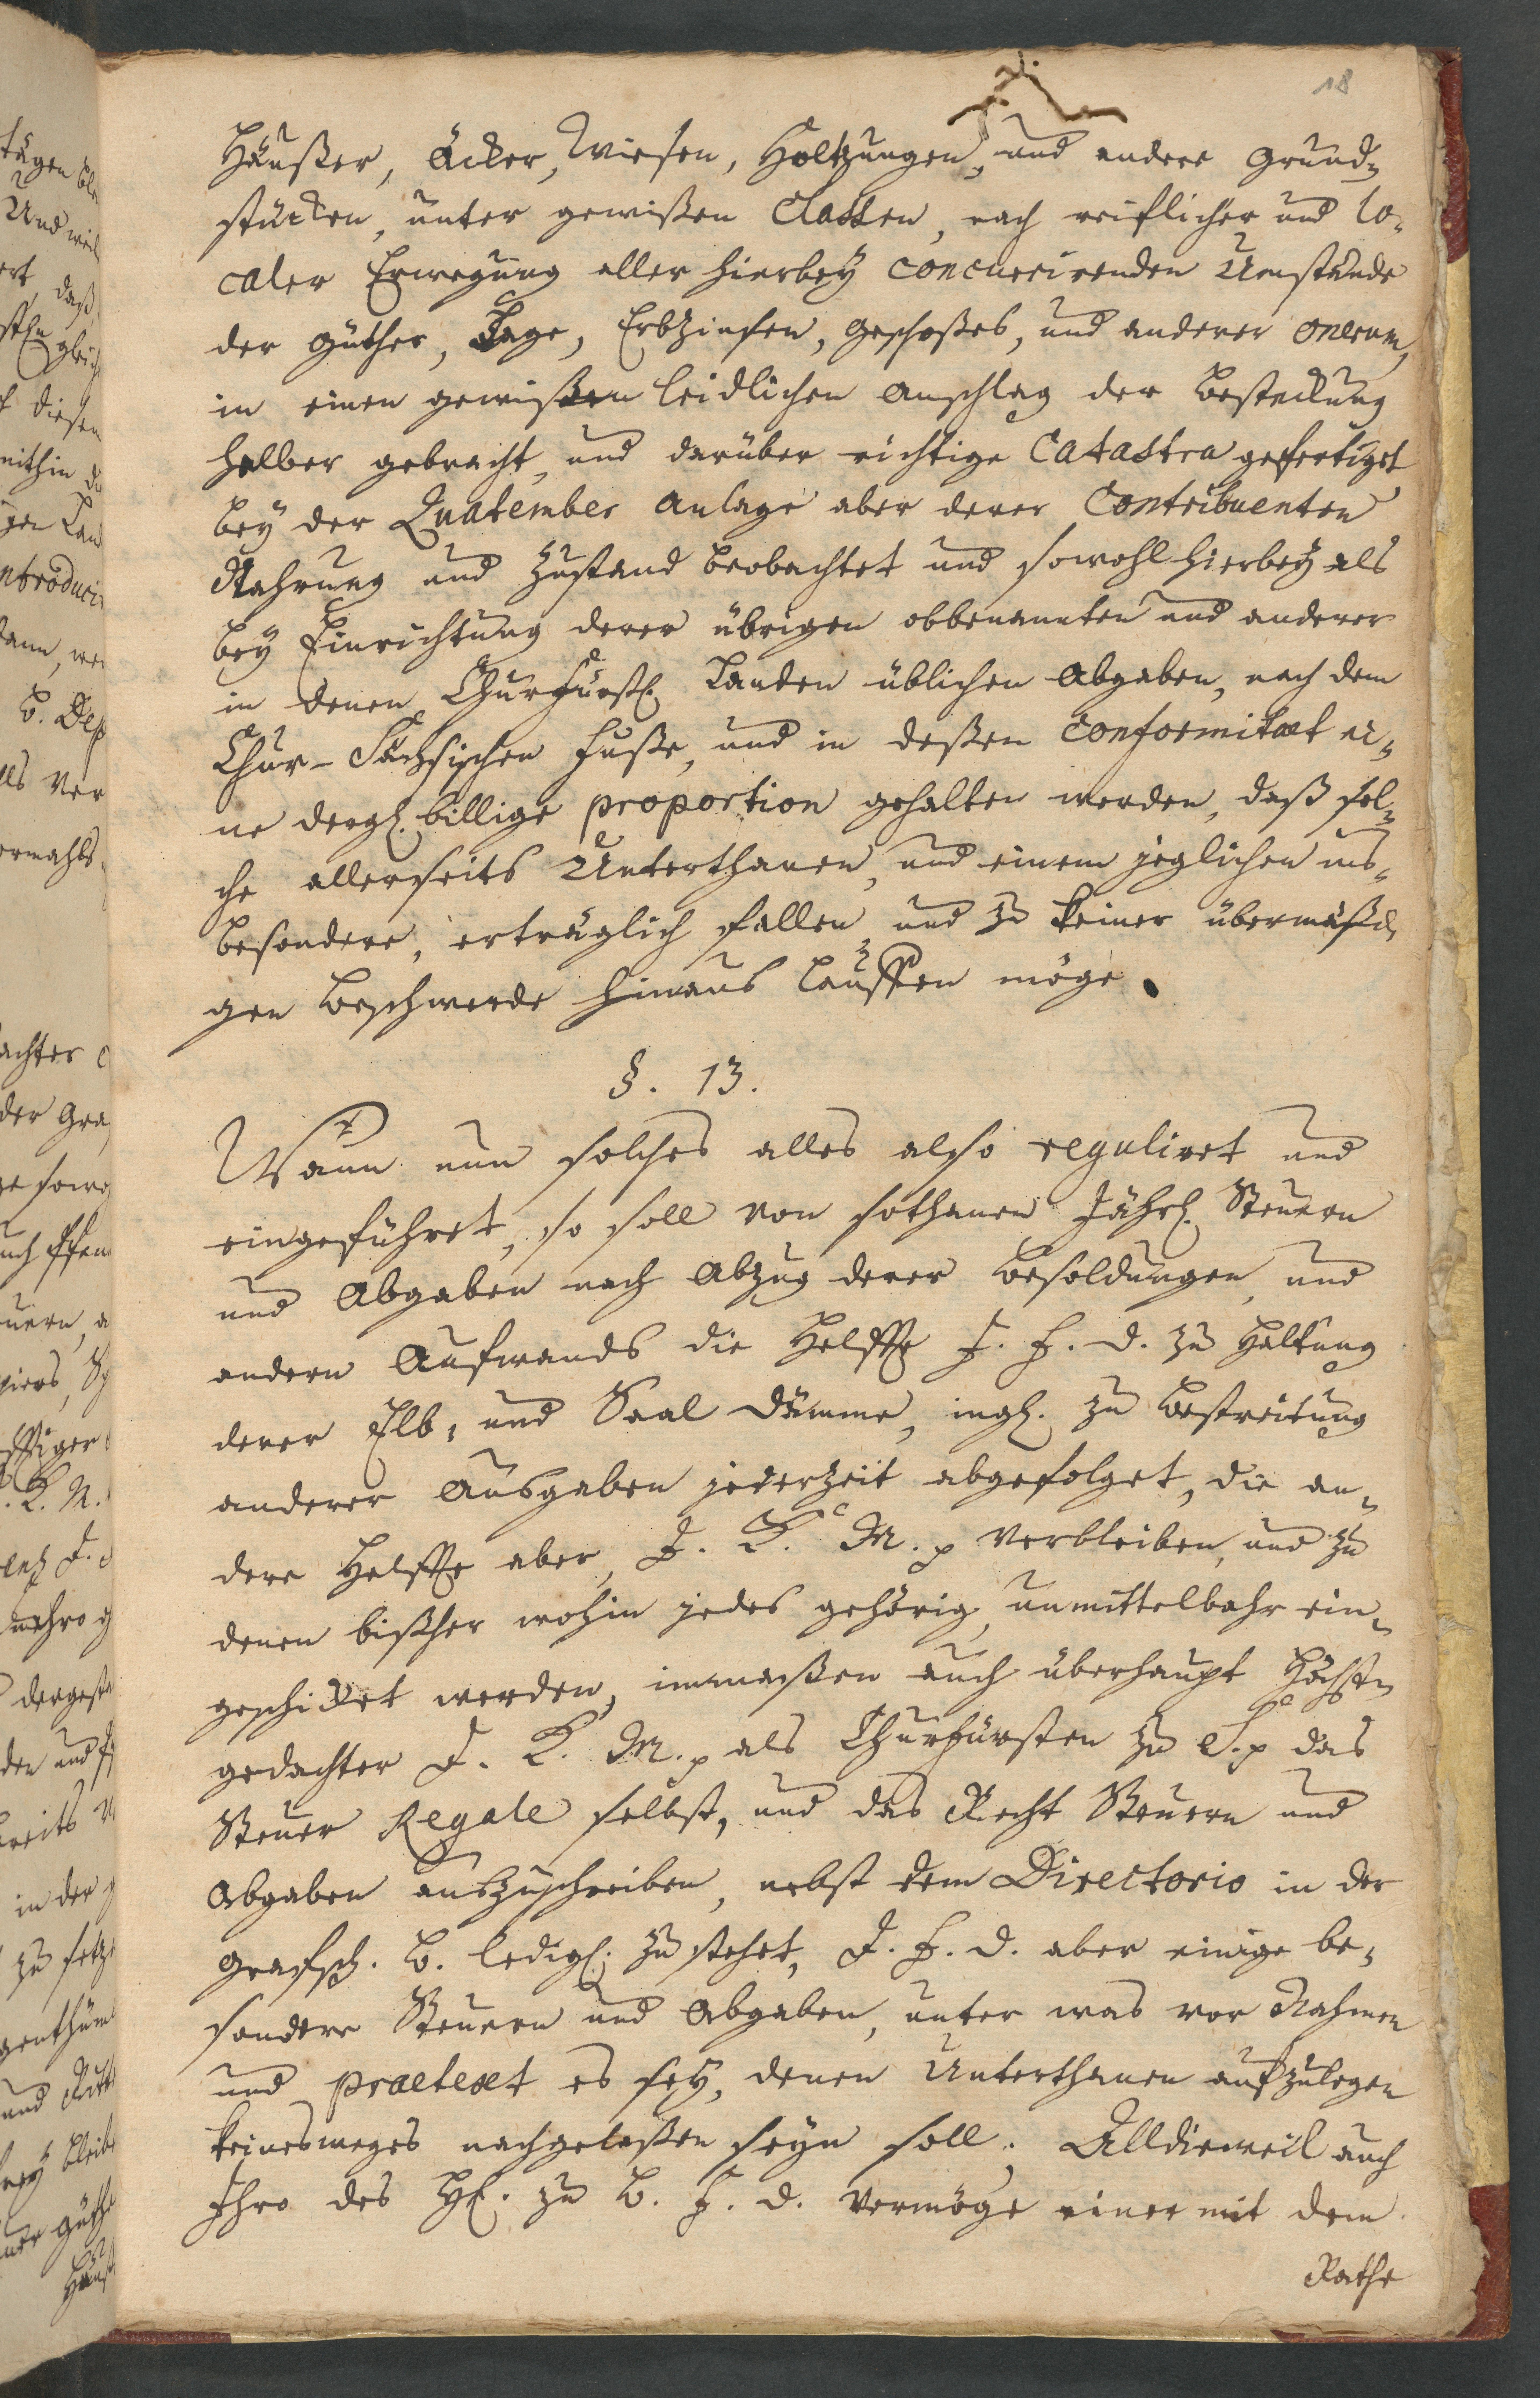 18
Häußer, Äcker, Wiesen, Holtzungen, und andere Grund-
stücken, unter gewißen Classen, nach reiflicher und lo-
caler Erwegung aller hierbey concurrirenden Umstände
der Güther, Lage, Erbzinsen, Geschoßes, und anderer onerum,
in einen gewißen leidlichen Anschlag der Besteckung
halber gebracht, und darüber richtige Catastra gefertiget,
bey der Quatember Anlage aber derer Contribuenten
Nahrung und Zustand beobachtet und sowohl hierbey als
bey Einrichtung derer übrigen obbenannten und anderer
in denen Churfürstl. Landen üblichen Abgaben, nach dem
Chur-Sächsischen Fuße, und in deßen conformitæt ei-
ne dergl. billige proportion gehalten werden, daß sol-
che allerseits Unterthanen, und einem jeglichen ins-
besondere, erträglich fallen und zu keiner übermäßi-
gen Beschwerde hinaus lauffen möge.
§. 13.
Wann nun solches alles also reguliret und
eingeführet, so soll von sothanen Jährl. Steuern
und Abgaben nach Abzug derer Besoldungen und
andern Aufwands die Helffte J. F. D. zu Haltung
derer Elb- und Saal Dämme, ingl. zu Bestreitung
anderer Ausgaben jederzeit abgefolget, die an-
dere Helffte aber J. K. M. p verbleiben, und zu
denen bißher wohin jedes gehörig, unmittelbahr ein-
geschicket werden, immaßen auch überhaupt Höchst-
gedachter J. K. M. p als Churfürsten zu S. p das
Steuer Regale selbst, und das Recht Steuern und
Abgaben auszuschreiben, nebst dem Directorio in der
Grafsch. B. ledigl. zustehet, J. F. D. aber einige be-
sondere Steuern und Abgaben, unter was vor Nahmen
und prætext es sey, denen Unterthanen aufzulegen
keinesweges nachgelaßen seyn soll; Alldieweil auch
Ihro des H. zu B. F. D. vermöge einer mit dem
Rathe